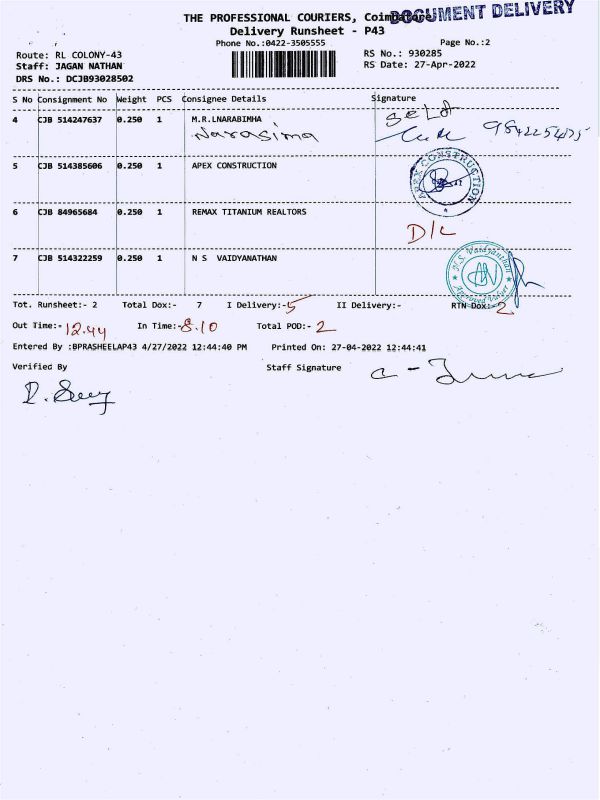 THE PROFESSIONAL COURIERS, Coimbatore
DOCUMENT DELIVERY
Delivery Runsheet - P43
Phone No.:0422-3505555
Page No.:2
Route: RL COLONY-43
RS No.: 930285
Staff: JAGAN NATHAN
RS Date: 27-Apr-2022
DRS No.: DCJB93028502
S No Consignment No Weight PCS Consignee Details Signature
4 CJB 514247637 0.250 1 M.R.LNARABIMHA
Narasima
5 CJB 514385606 0.250 1 APEX CONSTRUCTION
APEX CONSTRUCTION
6 CJB 84965684 0.250 1 REMAX TITANIUM REALTORS
D/L
7 CJB 514322259 0.250 1 N S VAIDYANATHAN
N.S. Vaidyanathan
Approved Valuer
Tot. Runsheet:- 2 Total Dox:- 7 I Delivery:-5 II Delivery:- RTN Dox:-2
Out Time:-12.44 In Time:-8.10 Total POD:-2
Entered By :BPRASHEELAP43 4/27/2022 12:44:40 PM Printed On: 27-04-2022 12:44:41
Verified By Staff Signature